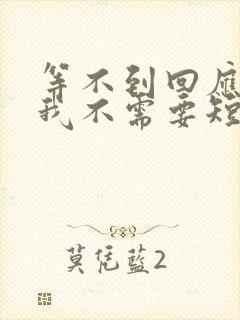 等不到回應
我不需要短
莫凭藍2